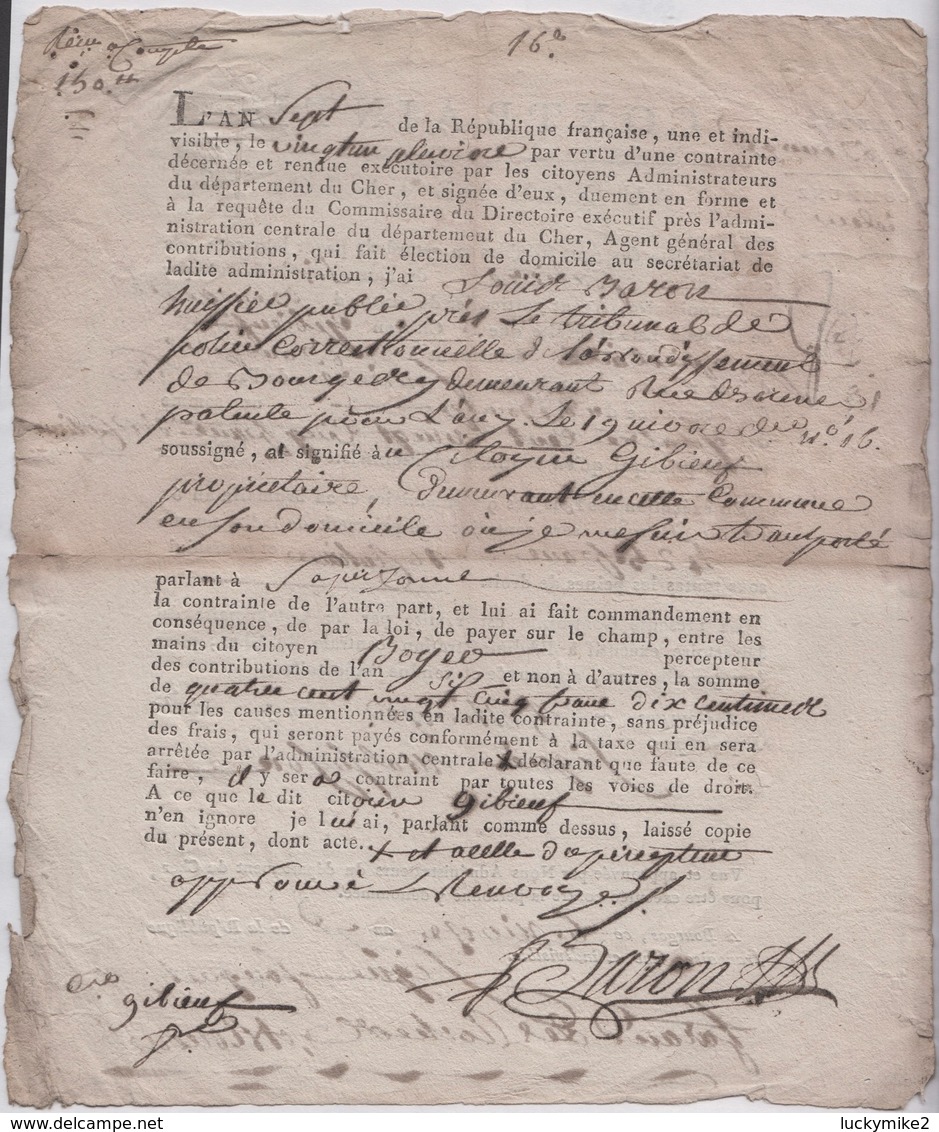 Reçu a Compte
150 ₶
16.
L'AN Sept de la République française, une et indi-
visible, le vingtun pluviose par vertu d'une contrainte
décernée et rendue exécutoire par les citoyens Administrateurs
du département du Cher, et signée d'eux, duement en forme et
à la requête du Commissaire du Directoire exécutif près l'admi-
nistration centrale du département du Cher, Agent général des
contributions, qui fait élection de domicile au secrétariat de
ladite administration, j'ai Louis Baron
huissier public près le tribunal de
police Correctionnelle de l'arrondissement
de Bourges y demeurant Rue
patenté pour l'an 7. Le 19 nivose n.º 16.
soussigné, ai signifié au Citoyen Gibieuf
propriétaire, demeurant en cette Commune
en son domicile où je me suis transporté
parlant à sa personne
la contrainte de l'autre part, et lui ai fait commandement en
conséquence, de par la loi, de payer sur le champ, entre les
mains du citoyen Boyer percepteur
des contributions de l'an six et non à d'autres, la somme
de quatre cent vingt cinq franc dix centimes
pour les causes mentionnées en ladite contrainte, sans préjudice
des frais, qui seront payés conformément à la taxe qui en sera
arrêtée par l'administration centrale + déclarant que faute de ce
faire, il y sera contraint par toutes les voies de droit.
A ce que le dit citoien Gibieuf
n'en ignore je lui ai, parlant comme dessus, laissé copie
du présent, dont acte. + et a celle du percepteur
approuvé le Renvoy
Baron
Gibieuf
luckymike2